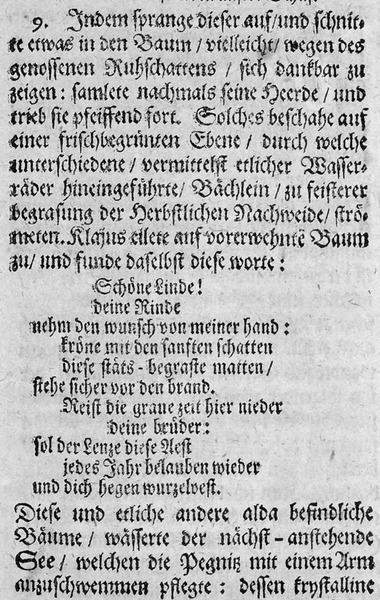 9. Indem sprange dieser auf/und schnit-
te etwas in den Baum/vielleicht/wegen des
genossenen Ruhschattens / sich dankbar zu
zeigen: samlete nachmals seine Heerde/und
trieb sie pfeiffend fort. Solches beschahe auf
einer frischbegrünten Ebene/ durch welche
unterschiedene/ vermittelst etlicher Wasser-
räder hineingeführte/ Bächlein/ zu feisterer
begrasung der Herbstlichen Nachweide/strö-
meten. Klajus eilete auf vorerwehntē Baum
zu/ und funde daselbst diese worte:
Schöne Linde!
deine Rinde
nehm den wunsch von meiner hand:
kröne mit den sanften schatten
diese stäts-begraste matten/
stehe sicher vor den brand.
Reist die graue zeit hier nieder
deine brüder:
sol der Lenze diese Aest
jedes Jahr belauben wieder
und dich hegen wurzelvest.
Diese und etliche andere alda befindliche
Bäume/ wässerte der nächst-anstehende
See/ welchen die Pegnitz mit einem Arm
anzuschwemmen pflegte: dessen krystalline